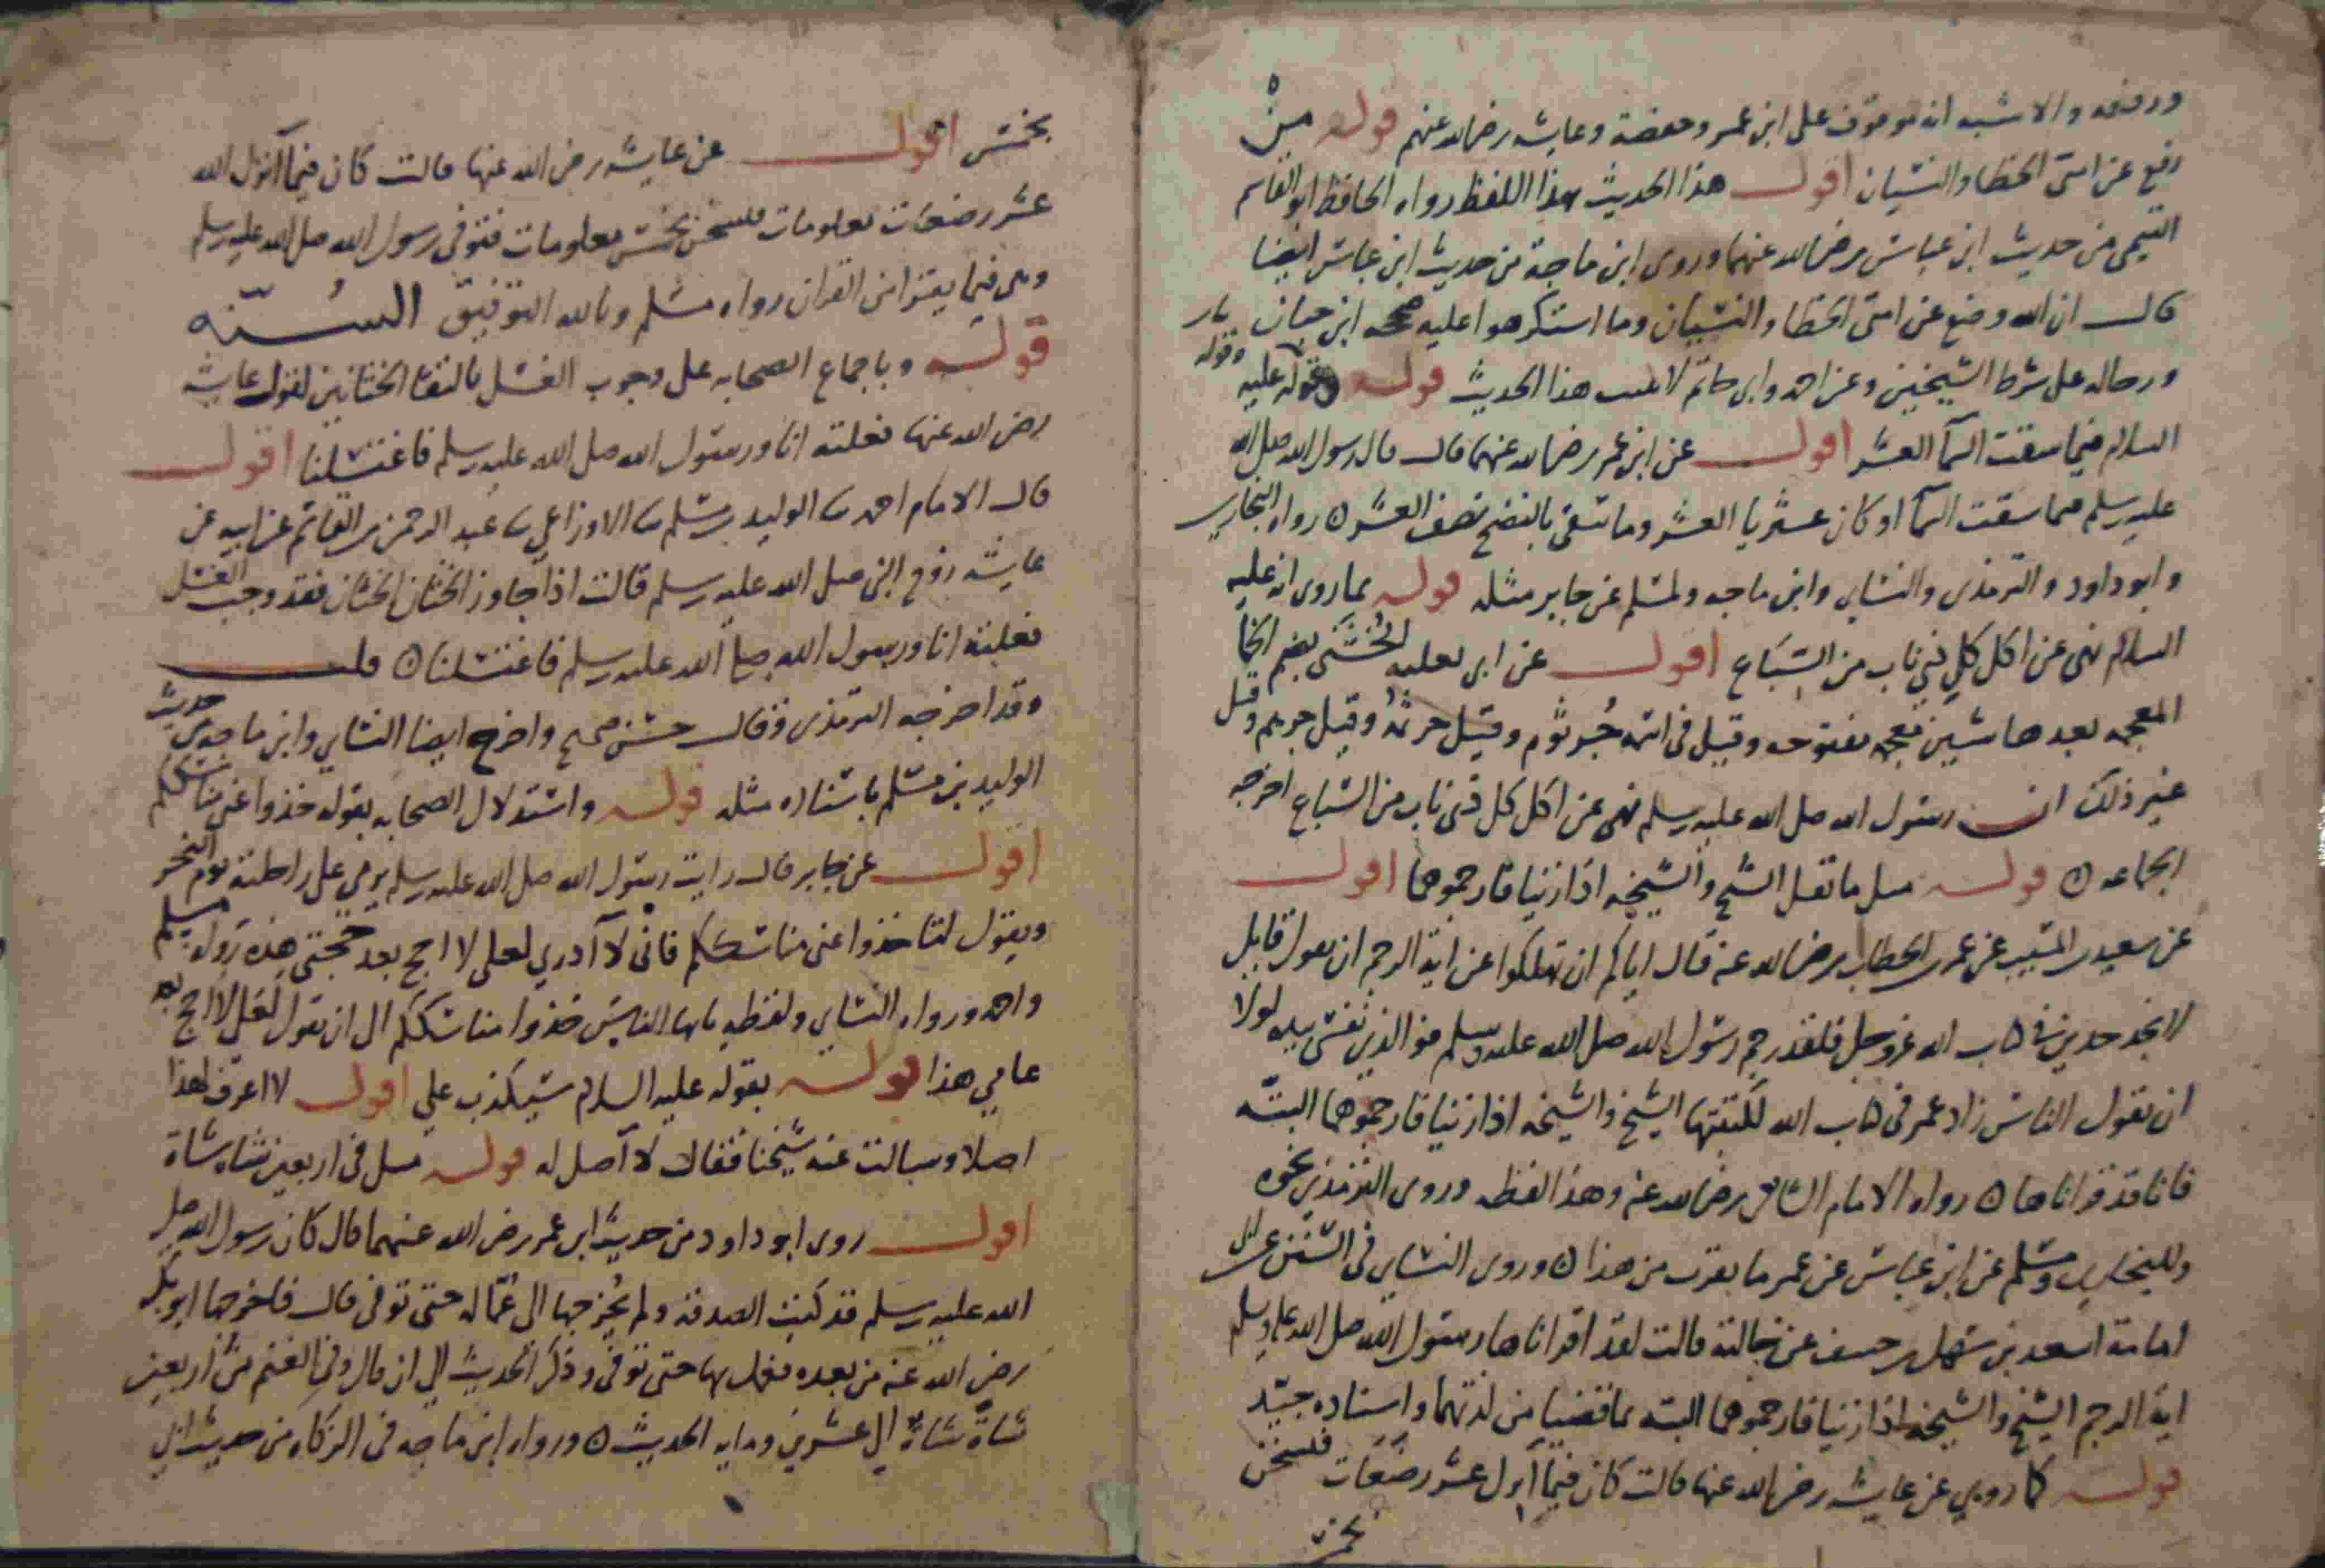 ورفعه والاشبه انه موقوف على ابن عمر وحفصة وعايشه رضي الله عنهم قوله
رفع عن امتي الخطا والنسيان اقول هذا الحديث بهذا اللفظ رواه الحافظ ابو القاسم
التيمي من حديث ابن عباس رضي الله عنهما وروى ابن ماجة من حديث ابن عباس ايضا
قال ان الله وضع عن امتي الخطا والنسيان وما استكرهوا عليه صححه ابن حبان
ورجاله على شرط الشيخين وعن احمد وابي حاتم لا يثبت هذا الحديث قوله وقوله عليه
السلام فيما سقت السما العشر اقول عن ابن عمر رضي الله عنهما قال قال رسول الله صلى الله
عليه وسلم فيما سقت السما او كان عثريا العشر وما سقى بالنضح نصف العشر ٥ رواه البخاري
وابو داود والترمذي والنساي وابن ماجه ولمسلم عن جابر مثله قوله بما روى انه عليه
السلام نهى عن اكل كل ذي ناب من السباع اقول عن ابي ثعلبه الخشني بضم الخا
المعجمه بعدها شين معجمه مفتوحه وقيل في اسمه جرثوم وقيل جرثمة وقيل جرهم وقيل
غير ذلك ان رسول الله صلى الله عليه وسلم نهى عن اكل كل ذي ناب من السباع اخرجه
الجماعه ٥ قوله مثل ما نقل الشيخ والشيخه اذا زنيا فارجموهما اقول
عن سعيد بن المسيب عن عمر بن الخطاب رضي الله عنه قال اياكم ان تهلكوا عن اية الرجم ان يقول قايل
لا نجد حدين في كتاب الله عز وجل فلقد رجم رسول الله صلى الله عليه وسلم فوالذي نفسي بيده لولا
ان تقول الناس زاد عمر في كتاب الله لكتبتها الشيخ والشيخه اذا زنيا فارجموهما البته
فانا قد قراناها ٥ رواه الامام الشافعي رضي الله عنه وهذا لفظه وروى الترمذي نحوه
وللبخاري ومسلم عن ابن عباس عن عمر ما يقرب من هذا ٥ وروى النساي في السنن عن ابي
امامة اسعد بن سهل بن حنيف عن خالته قالت لقد اقراناها رسول الله صلى الله عليه وسلم
اية الرجم الشيخ والشيخه اذا زنيا فارجموهما البته بما قضيا من لذتهما واسناده جيد
قوله كما روي عن عايشه رضي الله عنها قالت كان فيما انزل عشر رضعات فنسخن
بخمس
بخمس اقول عن عايشه رضي الله عنها قالت كان فيما انزل الله
عشر رضعات معلومات فنسخن بخمس معلومات فتوفى رسول الله صلى الله عليه وسلم
وهي فيما يقرا من القران رواه مسلم وبالله التوفيق السنه
قوله وباجماع الصحابه على وجوب الغسل بالتقا الختانين لقول عايشه
رضي الله عنها فعلته انا ورسول الله صلى الله عليه وسلم فاغتسلنا اقول
قال الامام احمد ثنا الوليد بن مسلم ثنا الاوزاعي ثنا عبد الرحمن بن القاسم عن ابيه عن
عايشه زوج النبي صلى الله عليه وسلم قالت اذا جاوز الختان الختان فقد وجب الغسل
فعلته انا ورسول الله صلى الله عليه وسلم فاغتسلنا ٥ قلت
وقد اخرجه الترمذي وقال حسن صحيح واخرج ايضا النساي وابن ماجه من حديث
الوليد بن مسلم باسناده مثله قوله واستدلال الصحابه بقوله خذوا عني مناسككم
اقول عن جابر قال رايت رسول الله صلى الله عليه وسلم يرمي على راحلته يوم النحر
ويقول لنا خذوا عني مناسككم فاني لا ادري لعلي لا احج بعد حجتي هذه رواه مسلم
واحمد ورواه النساي ولفظه يايها الناس خذوا مناسككم الى ان يقول لعلي لا احج بعد
عامي هذا قوله بقوله عليه السلام سيكذب علي اقول لا اعرف لهذا
اصلا وسالت عنه شيخنا فقال لا اصل له قوله مثل في اربعين شاه شاة
اقول روى ابو داود من حديث ابن عمر رضي الله عنهما قال كان رسول الله صلى
الله عليه وسلم قد كتب الصدقه ولم يخرجها الى عماله حتى توفى قال فاخرجها ابو بكر
رضي الله عنه من بعده فعمل بها حتى توفى وذكر الحديث الى ان قال وفي الغنم من اربعين
شاة شاة الى عشرين ومايه الحديث ٥ ورواه ابن ماجه في الزكاه من حديث ابن